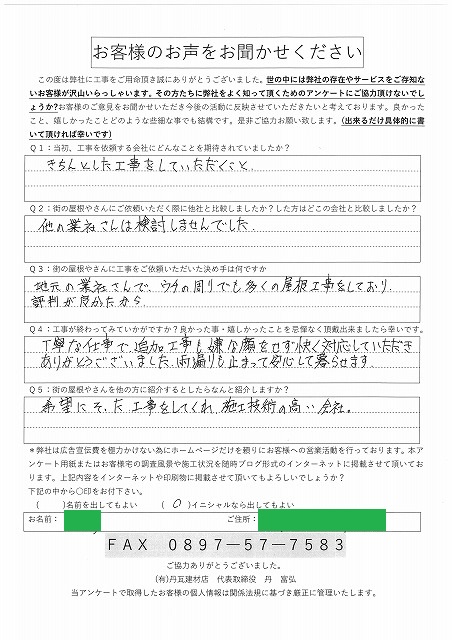 お客様のお声をお聞かせください
この度は弊社に工事をご用命頂き誠にありがとうございました。世の中には弊社の存在やサービスをご存知な
いお客様が沢山いらっしゃいます。その方たちに弊社をよく知って頂くためのアンケートにご協力頂けないでし
ょうか?お客様のご意見をお聞かせいただき今後の活動に反映させていただきたいと考えております。良かった
こと、嬉しかったことどのような些細な事でも結構です。是非ご協力お願い致します。(出来るだけ具体的に書
いて頂ければ幸いです)
Q1:当初、工事を依頼する会社にどんなことを期待されていましたか?
きちんとした工事をしていただくこと。
Q2:街の屋根やさんにご依頼いただく際に他社と比較しましたか?した方はどこの会社と比較しましたか?
他の業社さんは検討しませんでした。
Q3:街の屋根やさんに工事をご依頼いただいた決め手は何ですか
地元の業社さんで、ウチの周りでも多くの屋根工事をしており、
評判が良かたから。
Q4:工事が終わってみていかがですか?良かった事・嬉しかったことを忌憚なく頂戴出来ましたら幸いです。
丁寧な仕事で、追加工事も嫌な顔をせず快く対応していただき
ありがとうございました。雨漏りも止まって安心して暮らせます
Q5:街の屋根やさんを他の方に紹介するとしたらなんと紹介しますか?
希望にそった工事をしてくれ、施工技術の高い会社。
*弊社は広告宣伝費を極力かけない為にホームページだけを頼りにお客様への営業活動を行っております。本ア
ンケート用紙またはお客様宅の調査風景や施工状況を随時ブログ形式のインターネットに掲載させて頂いてお
ります。上記内容をインターネットや印刷物に掲載させて頂いてもよろしいでしょうか?
下記の中から○印をお付下さい。
( )名前を出してもよい ( ○ )イニシャルなら出してもよい
お名前: ご住所:
FAX 0897-57-7583
ご協力ありがとうございました。
(有)丹瓦建材店 代表取締役 丹 富弘
当アンケートで取得したお客様の個人情報は関係法規に基づき厳正に管理いたします。